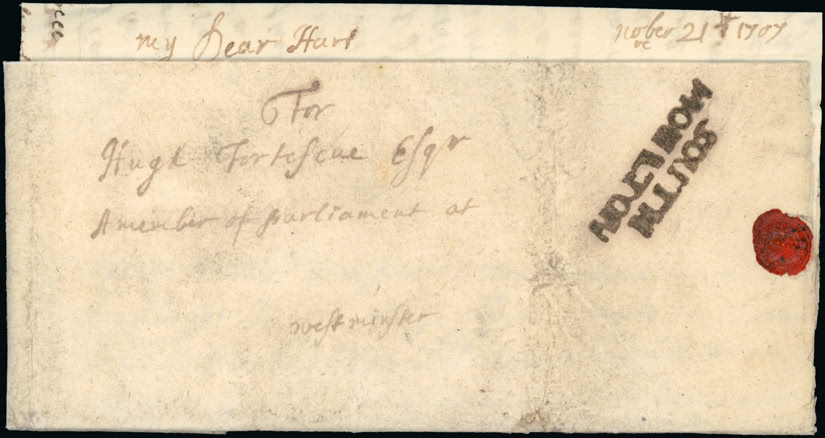 my Dear Hart nober ye 21st 1707
For
Hugh Fortescue Esqr
A member of parliament at
westminster
SOUTH